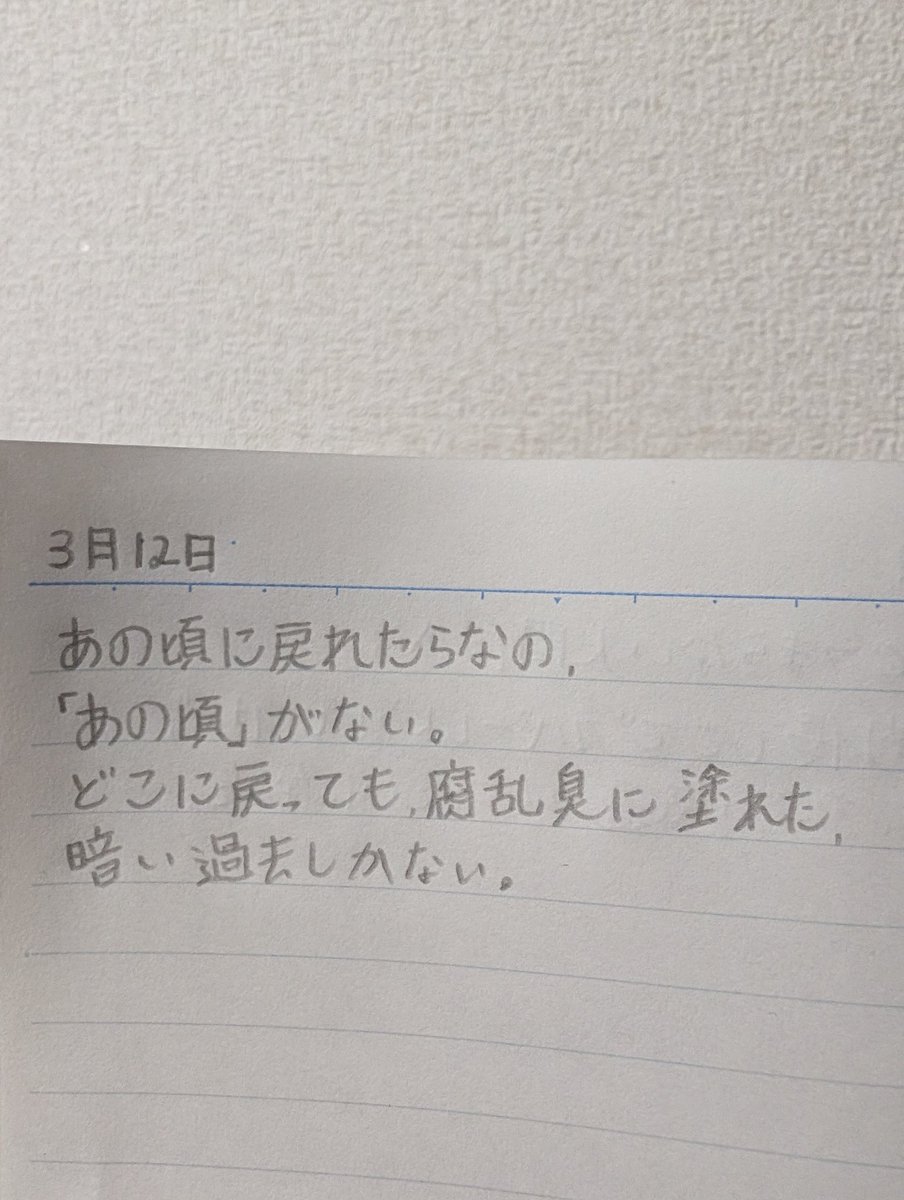 3月12日
あの頃に戻れたらなの、
「あの頃」がない。
どこに戻っても、腐乱臭に塗れた、
暗い過去しかない。